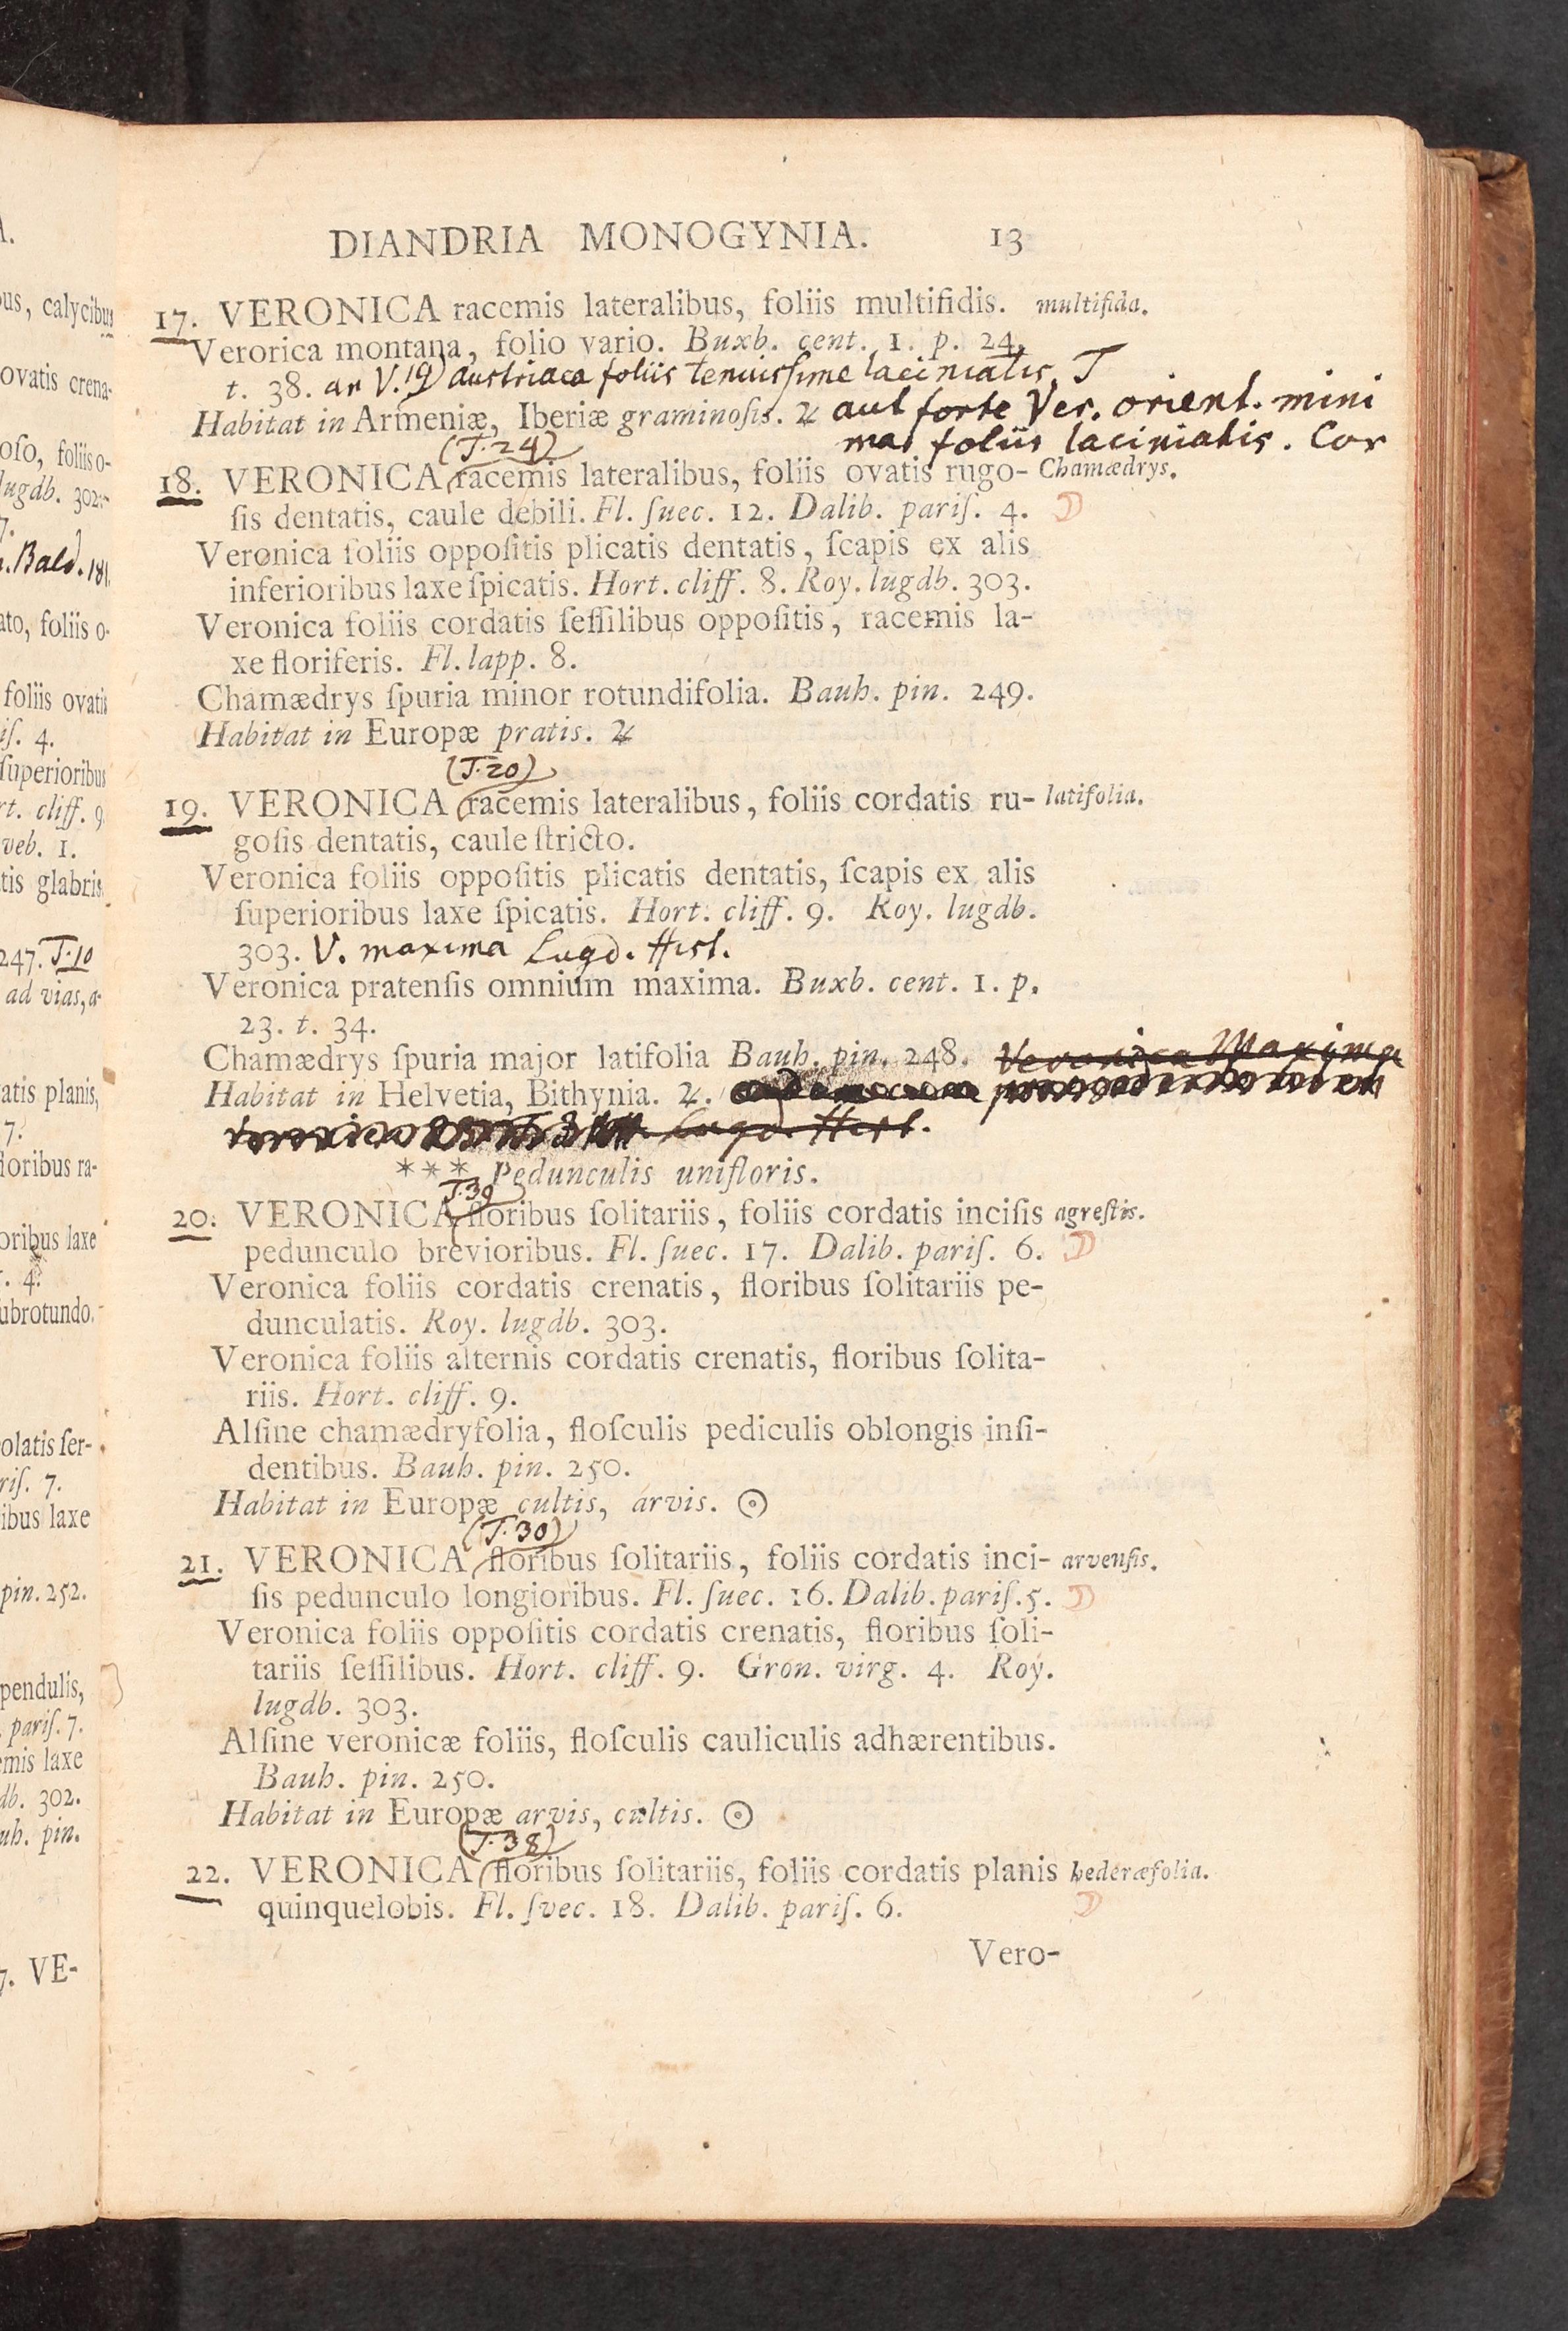 DIANDRIA MONOGYNIA. 13
17. VERONICA racemis lateralibus, foliis multifidis. multifida.
Verorica montana, folio vario. Buxb. cent. 1. p. 24.
t. 38. an V. 19) austriaca foliis tenuissime laciniatis. T
Habitat in Armeniæ, Iberiæ graminoſis. ♃ aut forte Ver. orient. mini
ma foliis laciniatis. Cor
(T. 24)
18. VERONICA racemis lateralibus, foliis ovatis rugo- Chamædrys.
ſis dentatis, caule debili. Fl. ſuec. 12. Dalib. pariſ. 4. D
Veronica foliis oppoſitis plicatis dentatis, ſcapis ex alis
inferioribus laxe ſpicatis. Hort. cliff. 8. Roy. lugdb. 303.
Veronica foliis cordatis ſeſſilibus oppoſitis, racemis la-
xe floriferis. Fl. lapp. 8.
Chamædrys ſpuria minor rotundifolia. Bauh. pin. 249.
Habitat in Europæ pratis. ♃
(T. 20)
19. VERONICA racemis lateralibus, foliis cordatis ru- latifolia.
goſis dentatis, caule ſtricto.
Veronica foliis oppoſitis plicatis dentatis, ſcapis ex alis
ſuperioribus laxe ſpicatis. Hort. cliff. 9. Roy. lugdb.
303. V. maxima Lugd. Hist.
Veronica pratenſis omnium maxima. Buxb. cent. 1. p.
23. t. 34.
Chamædrys ſpuria major latifolia Bauh. pin. 248. Veronica Maxima
Habitat in Helvetia, Bithynia. ♃.
Lugd. Hist.
*** Pedunculis unifloris.
T. 39
20. VERONICA floribus ſolitariis, foliis cordatis inciſis agreſtis.
pedunculo brevioribus. Fl. ſuec. 17. Dalib. pariſ. 6. D
Veronica foliis cordatis crenatis, floribus ſolitariis pe-
dunculatis. Roy. lugdb. 303.
Veronica foliis alternis cordatis crenatis, floribus ſolita-
riis. Hort. cliff. 9.
Alſine chamædryfolia, floſculis pediculis oblongis inſi-
dentibus. Bauh. pin. 250.
Habitat in Europæ cultis, arvis. ☉
(T. 30)
21. VERONICA floribus ſolitariis, foliis cordatis inci- arvenſis.
ſis pedunculo longioribus. Fl. ſuec. 16. Dalib. pariſ. 5. D
Veronica foliis oppoſitis cordatis crenatis, floribus ſoli-
tariis ſeſſilibus. Hort. cliff. 9. Gron. virg. 4. Roy.
lugdb. 303.
Alſine veronicæ foliis, floſculis cauliculis adhærentibus.
Bauh. pin. 250.
Habitat in Europæ arvis, cultis. ☉
(T. 38)
22. VERONICA floribus ſolitariis, foliis cordatis planis hederæfolia.
quinquelobis. Fl. ſvec. 18. Dalib. pariſ. 6. D
Vero-